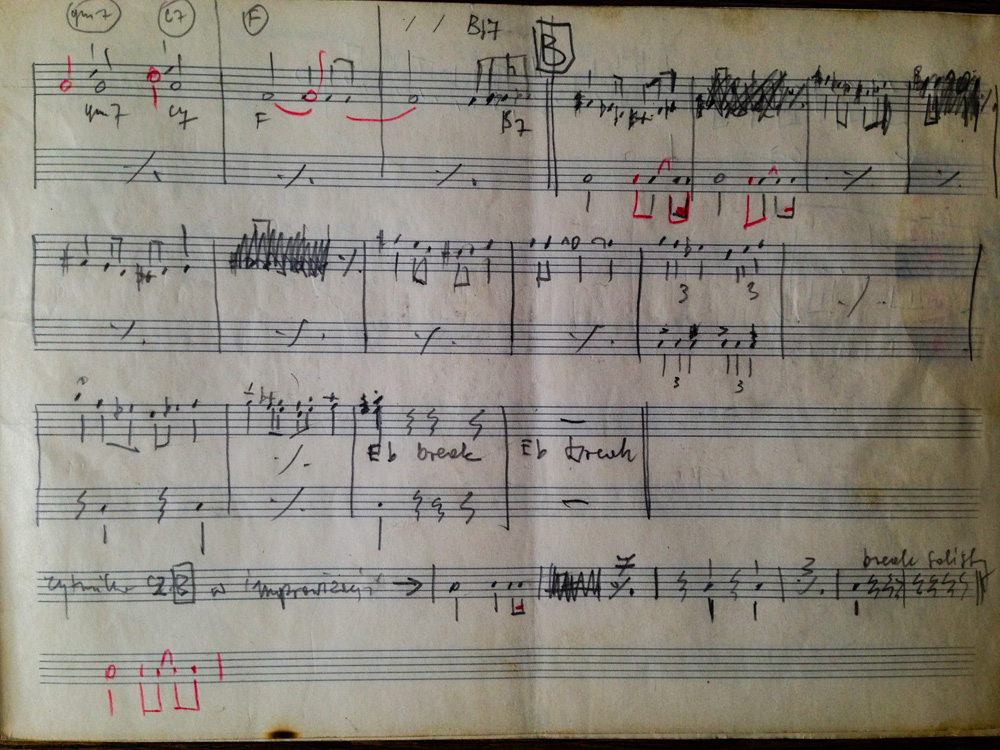 gm7 C7 F B♭7
B
gm7 C7 F B7
3 3
3 3
Eb break Eb break
rytmika cz. B w improwizacji → 7 3 break solisty